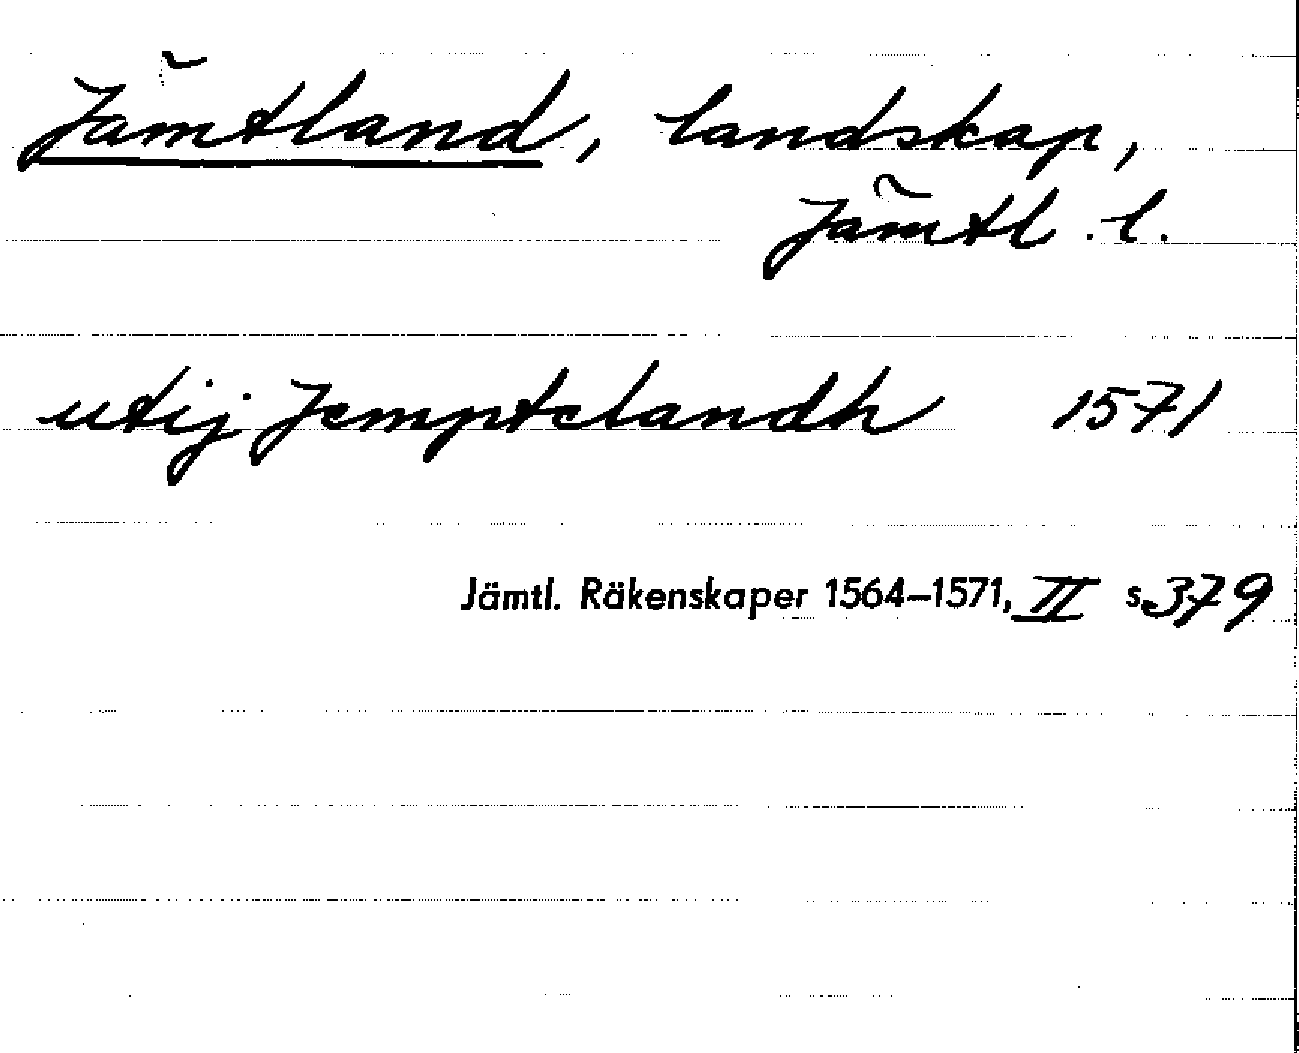 Jämtland, landskap,
Jämtl. l.
utij Jemptelandh 1571
Jämtl. Räkenskaper 1564–1571, II s. 379